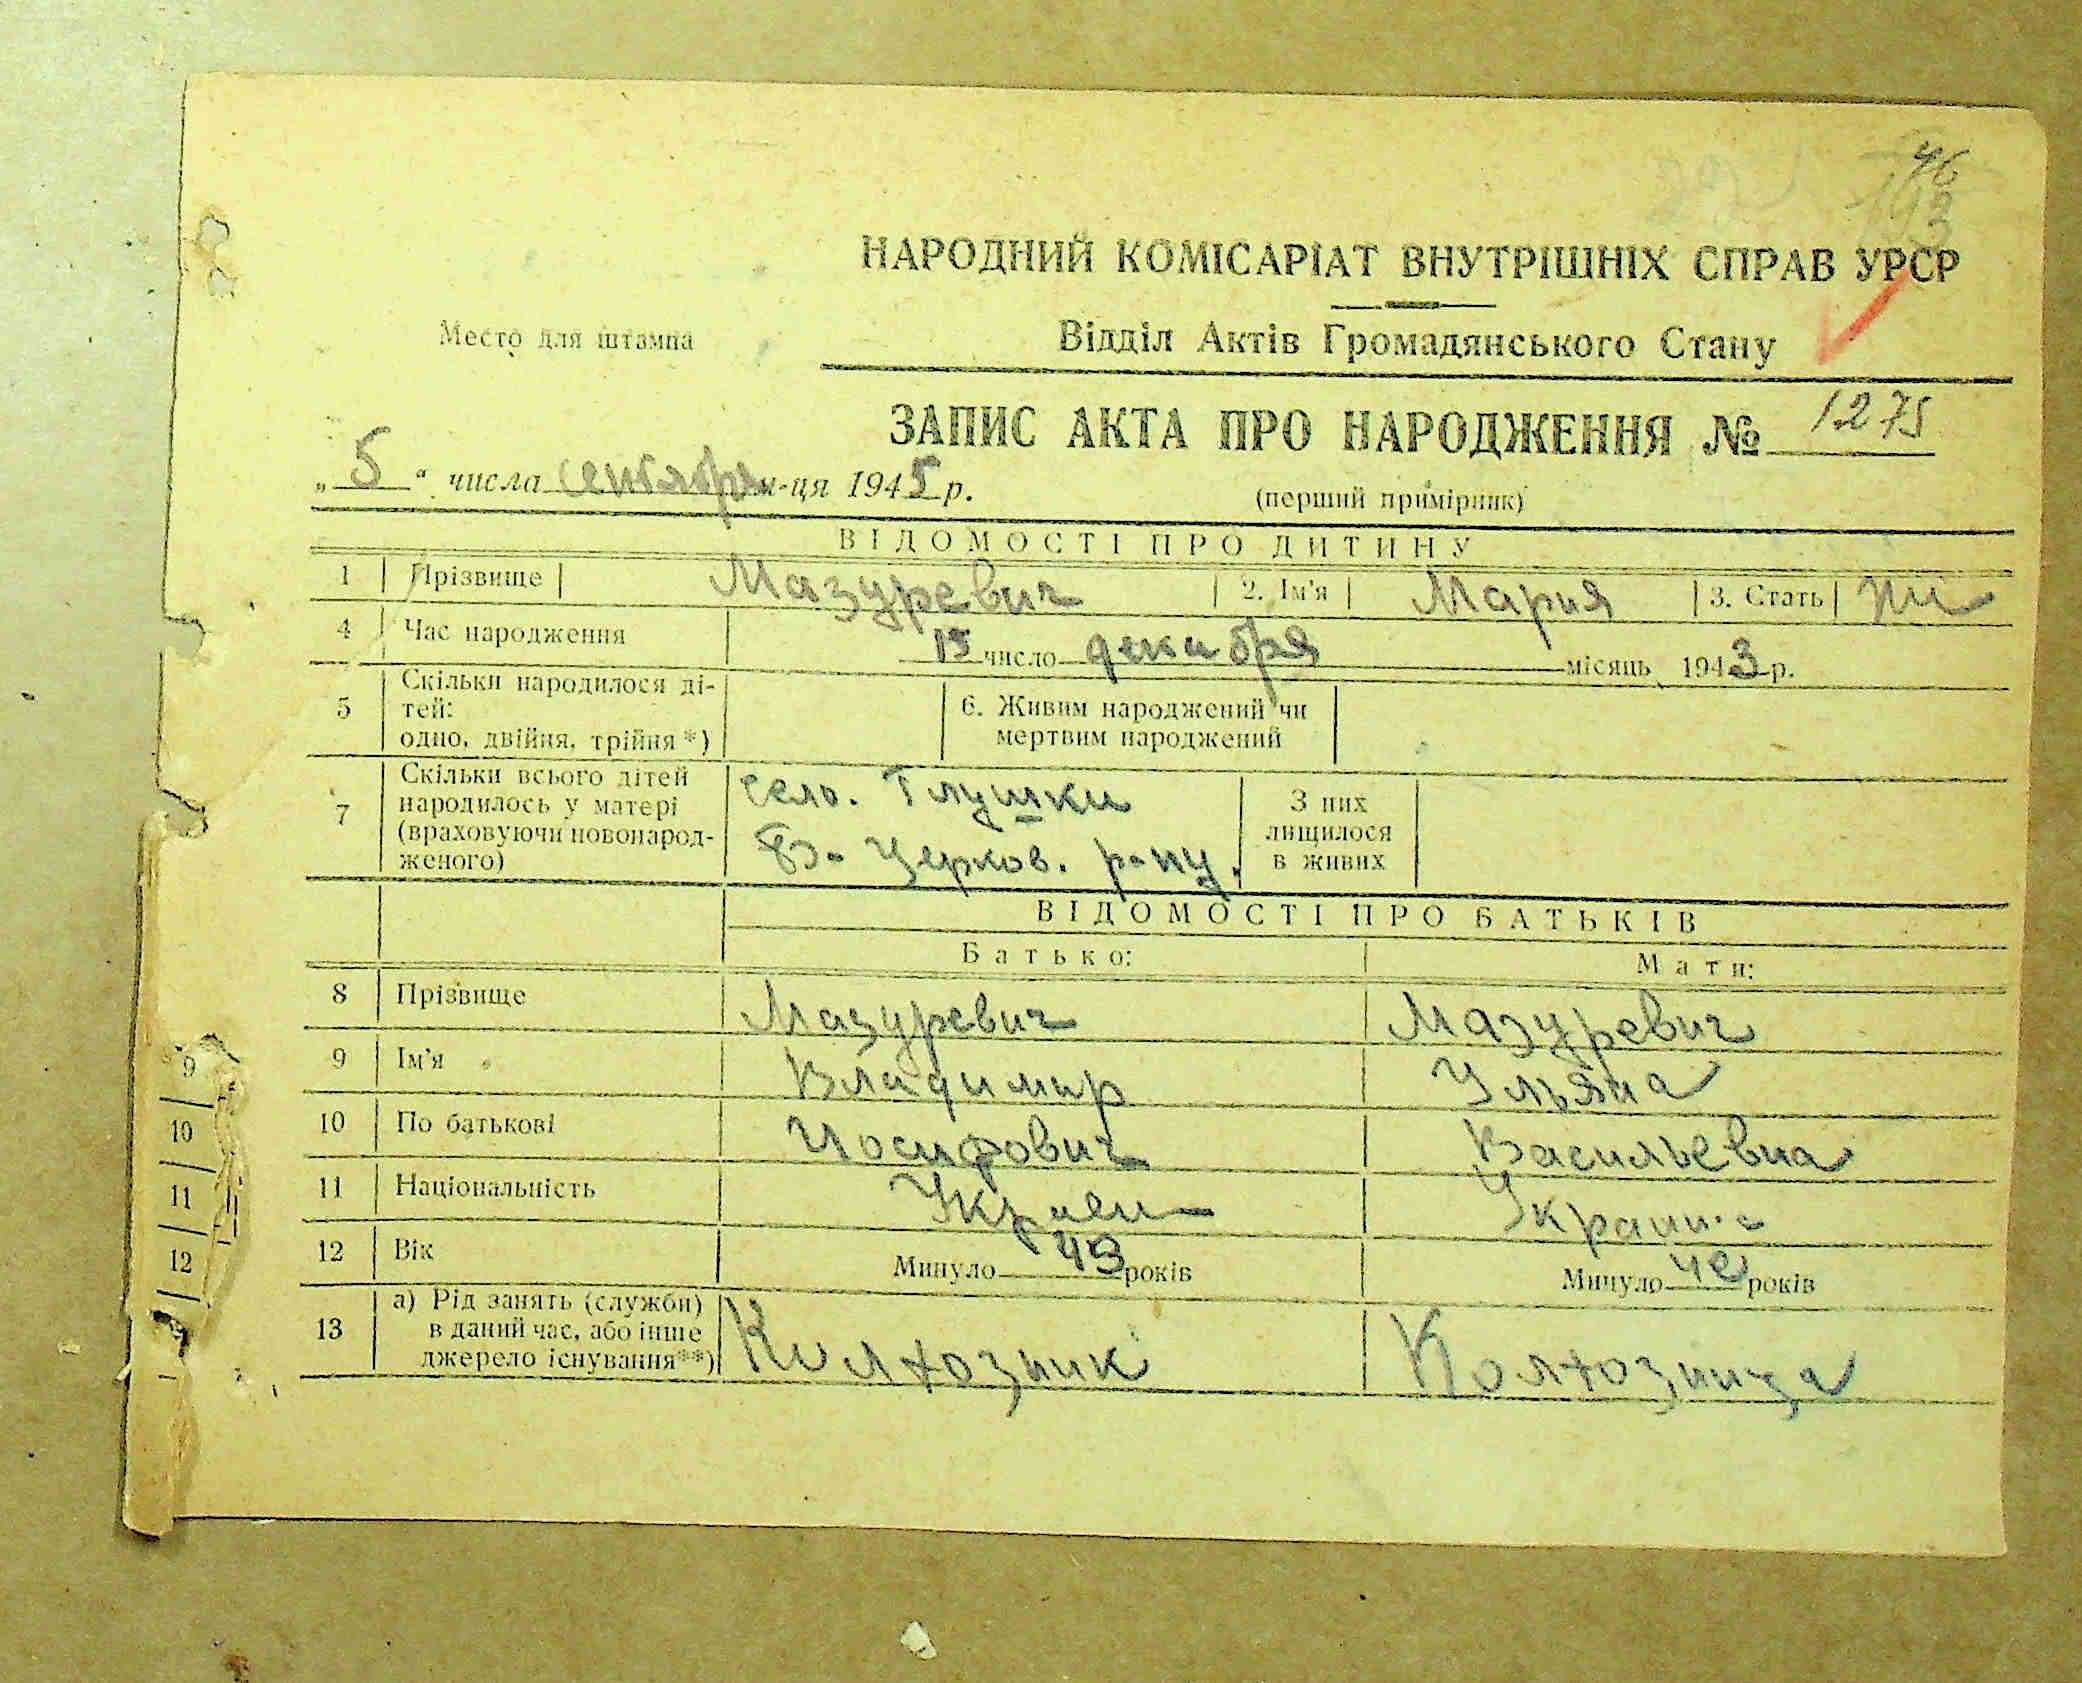 46
НАРОДНИЙ КОМІСАРІАТ ВНУТРІШНІХ СПРАВ УРСР
Место для штампа
Відділ Актів Громадянського Стану
ЗАПИС АКТА ПРО НАРОДЖЕННЯ № 1275
„5“ числа сентября м-ця 1945 р.
(перший примірник)
ВІДОМОСТІ ПРО ДИТИНУ
1 Прізвище Мазуревич 2. Ім'я Мария 3. Стать
4 Час народження 15 число декабря місяць 1943 р.
5 Скільки народилося ді-
тей:
одно, двійня, трійня*)
6. Живим народжений чи
мертвим народжений
7 Скільки всього дітей
народилось у матері
(враховуючи новонарод-
женого)
село. Глушки
Б-Церков. р-ну.
З них
лищилося
в живих
ВІДОМОСТІ ПРО БАТЬКІВ
Батько: Мати:
8 Прізвище Мазуревич Мазуревич
9 Ім'я Владимир Ульяна
10 По батькові Иосифович Васильевна
11 Національність
12 Вік Минуло 43 років Минуло років
13 а) Рід занять (служби)
в даний час, або інше
джерело існування**)
Колхозник Колхозница
9
10
11
12